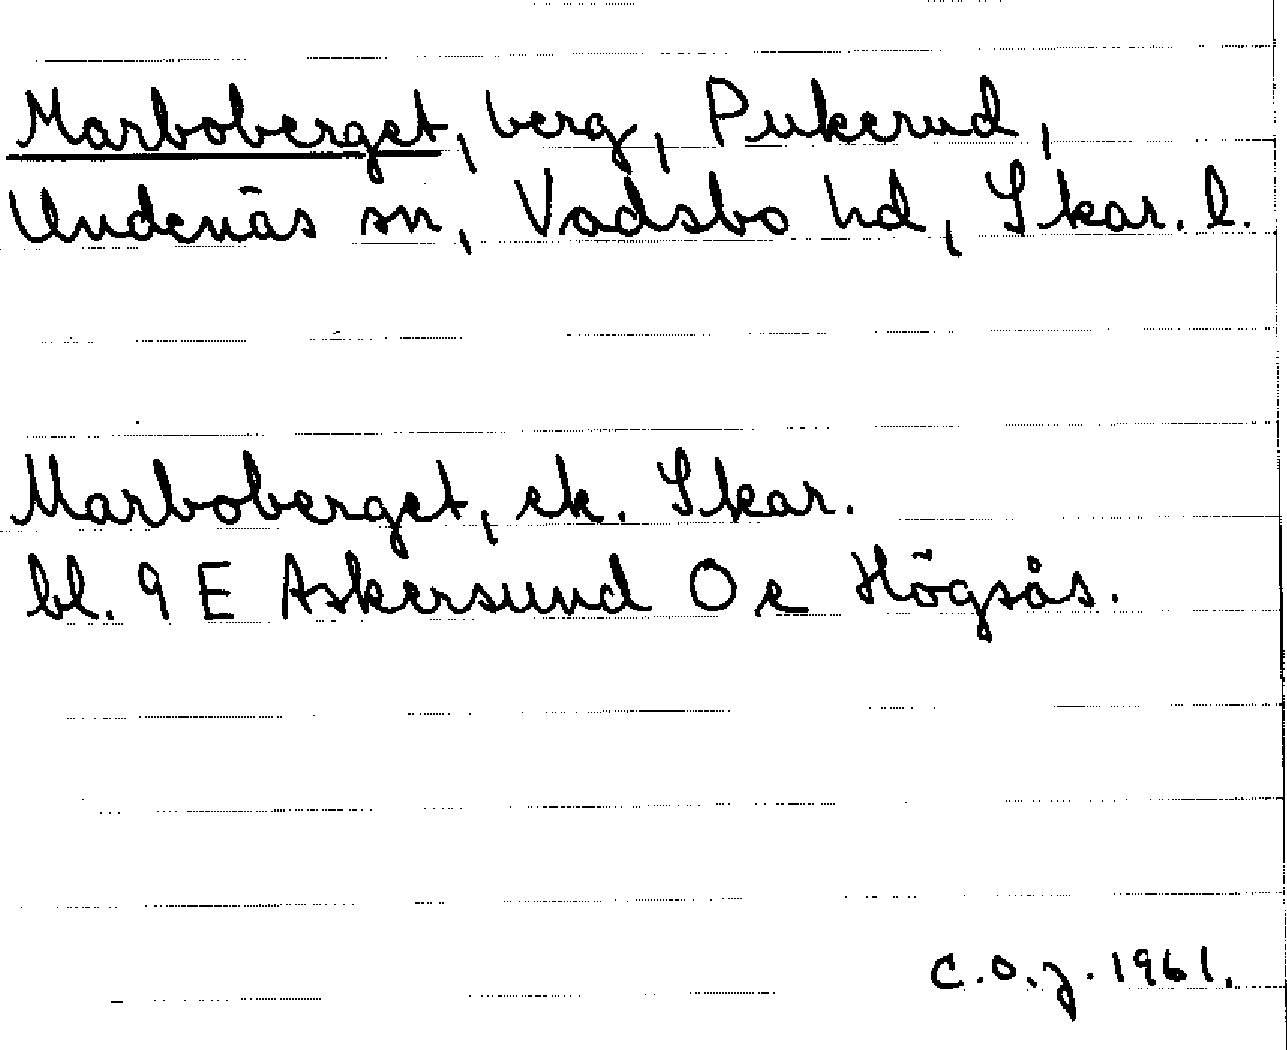 Marboberget, berg, Pukerud,
Undenäs sn, Vadsbo hd, Skar. l.
Marboberget, ek. Skar.
bl. 9 E Askersund O e Högsås.
C.O.J. 1961.